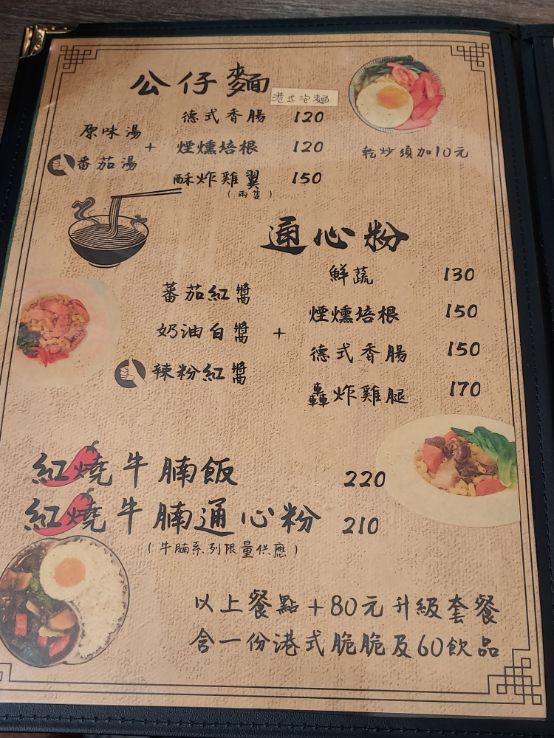 公仔麵
港式泡麵
德式香腸 120
原味湯
+ 煙燻培根 120
乾炒須加10元
番茄湯
酥炸雞翼 150
(兩隻)
通心粉
鮮蔬 130
蕃茄紅醬
煙燻培根 150
奶油白醬 +
德式香腸 150
辣粉紅醬
轟炸雞腿 170
紅燒牛腩飯 220
紅燒牛腩通心粉 210
(牛腩系列限量供應)
以上餐點+80元升級套餐
含一份港式脆脆及60飲品